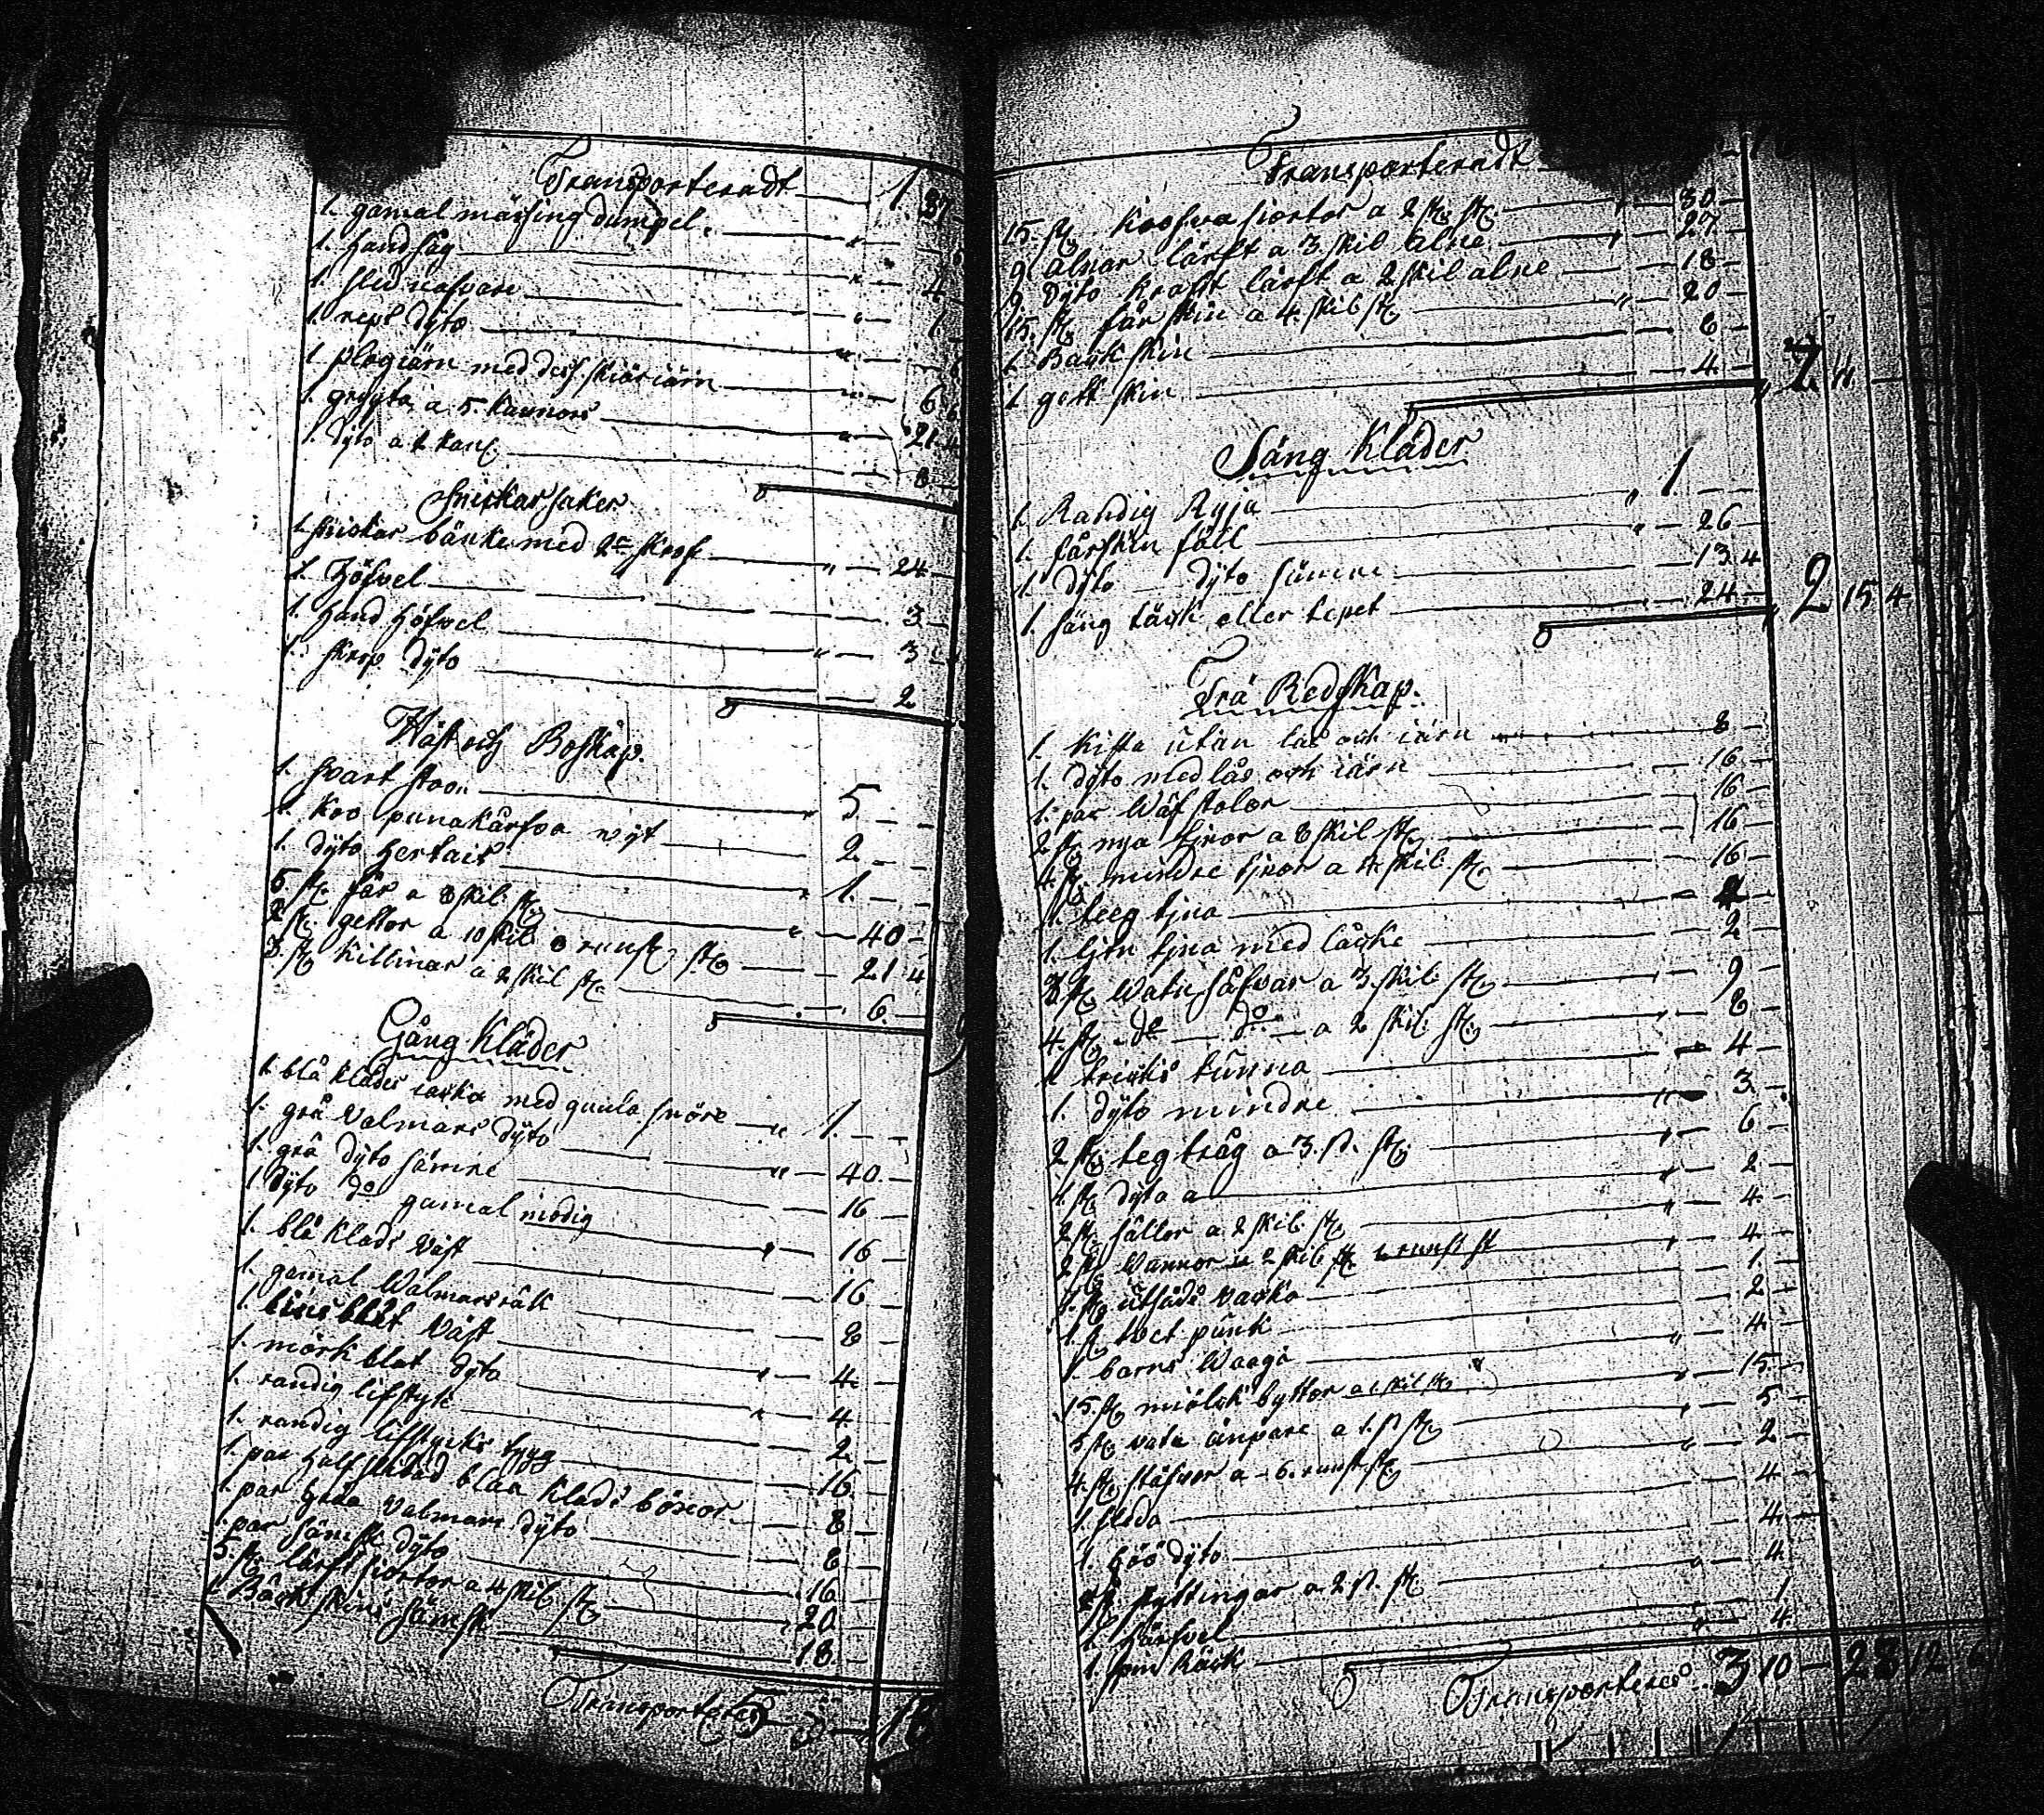 Transporteradt 1. 37
1. gamal mässing dumpel.
1. handsåg 4
1. slid nafvare 1
1. repl dÿto
1. plogiärn med dess skiäriärn 6
1. grÿta a 5. kannor 21. 4
1. dÿto a 2 kan. 8
Snickar saker
1. snickar bänk med 2ne skrof 24
1. Höfvel 3
1. hand höfvel 3
1. skrop dÿto 2
Häst och Boskap.
1. svart stoo 5
1. Koo punakärfva nÿt 2
1. dÿto hertais 1.
5 st. får a 8 skil. st. 40
2 st. gettor a 10 skil 8 runst. st. 21 4
3. st. killinar a 2 skil st. 6.
Gång Kläder
1. blå klädes jacka med guula snöre 1.
1. grå valmars dÿto 40.
1. grå dÿto sämre 16
1 dÿto do gamal modig 16
1. blå kläds väst 16
1. gamal Walmars råk 8
1. lius blåt väst 4
1. mörk blat dÿto 4
1. randig lifstyk 2.
1. randig lifstycks tyyg 16
1. par half slitad blåa kläds böxor 8
1. par gråa valmars dÿto 8
1. par sämsk dÿto 16
5. st. lärfts siortor a 4 skil st. 20
1 Bäck skins sämsk 18
Transporteres 5 3 18
Transporteradt
15. st. koofva siortor a 2 st. st. 30
9 alnar lärft a 3 skil alne 27
9 dÿto kraftt lärft a 2 skil alne 18
15. st. får skin a 4. skil st. 20
1 Back skin 8
1 gett skin 4 7 11
Säng Kläder
1. Randig Ryja 1.
1. fårskin fäll 26
1. dÿto dÿto sämre 13. 4
1. säng täck eller tepet 24 2 15 4
Trä Redskap.
1. kista utan lås och iärn 8
1. dÿto med lås och iärn 16
1. par Wäfstolar 16
2 st. nya tjnor a 8 skil st. 16
4 st. mindre tjnor a 4 skil st. 16
1. teeg tjna 4
1. ljtn tjna med låcke 2
3 st. Watn såfvar a 3. skil st. 9
4. st. do do a 2 skil. st. 8
1 tricks tunna 4
1. dÿto mindre 3.
2 st. teg tråg a 3. s. st. 6
1. st. dÿto a 2
2 st. sållor a 2 skil st. 4.
2 st. Wannor a 2 skil st. 4.
1. st. utsäds vacka 1.
1. st. tvet punk 2
1. barns Waaga 4.
15. st. miölck byttor a 1 skil st. 15.
5 st. vatn ämpare a 1. s st. 5
4. st. stäfvor a 6. runst st. 2
1 sleda 4
1. höö dÿto 4.
2 st. kyttingar a 2 s. st. 4
1. härfvel 1
1. spin Råck 4
Transporteres 3 10 28 12 6